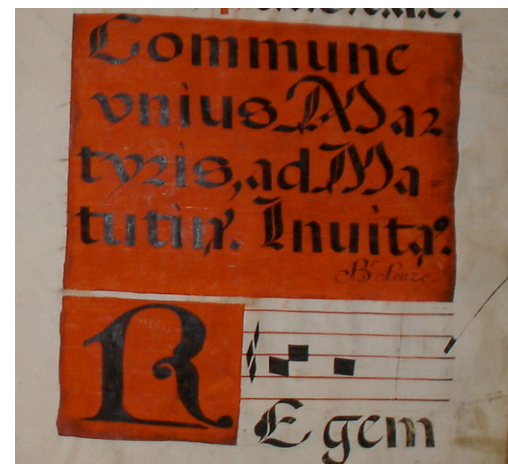 Commune
vnius Mar
tyris, ad Ma-
tutin. Inuita.
R
E gem